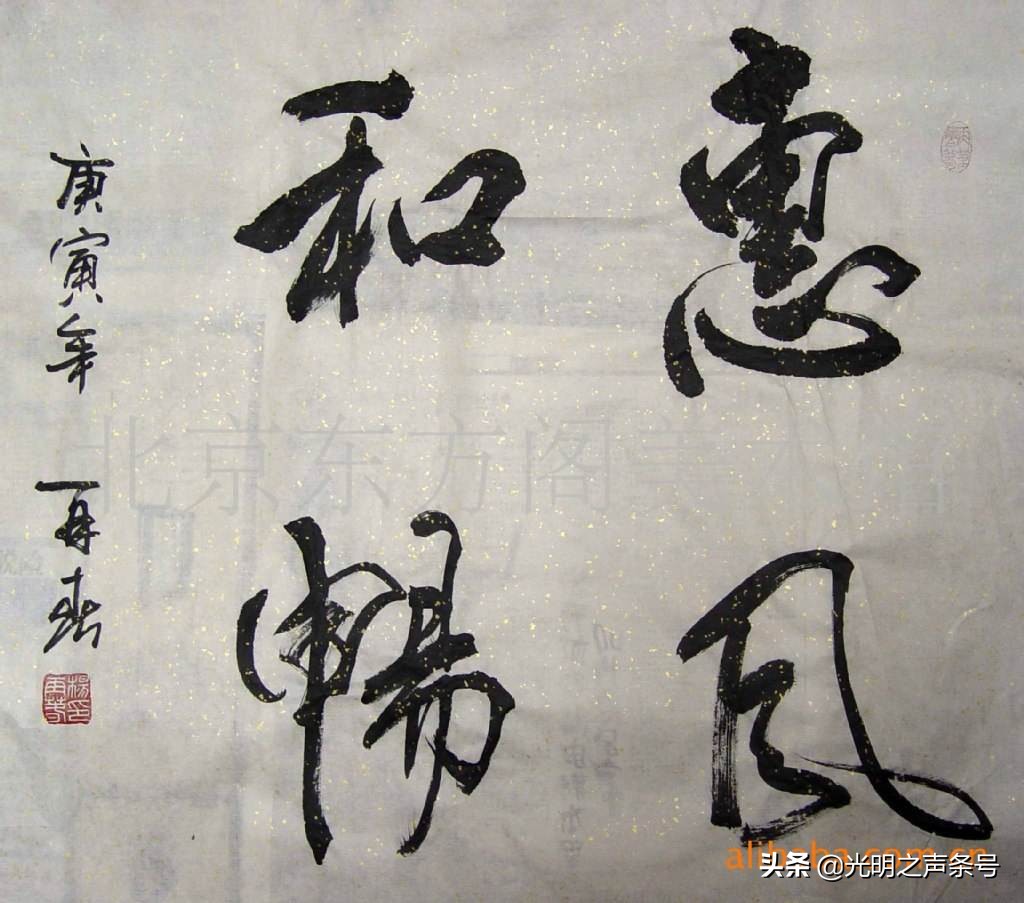 惠风
和暢
庚寅年 再春
北京东方阁美
alibaba.com.cn
头条 @光明之声条号